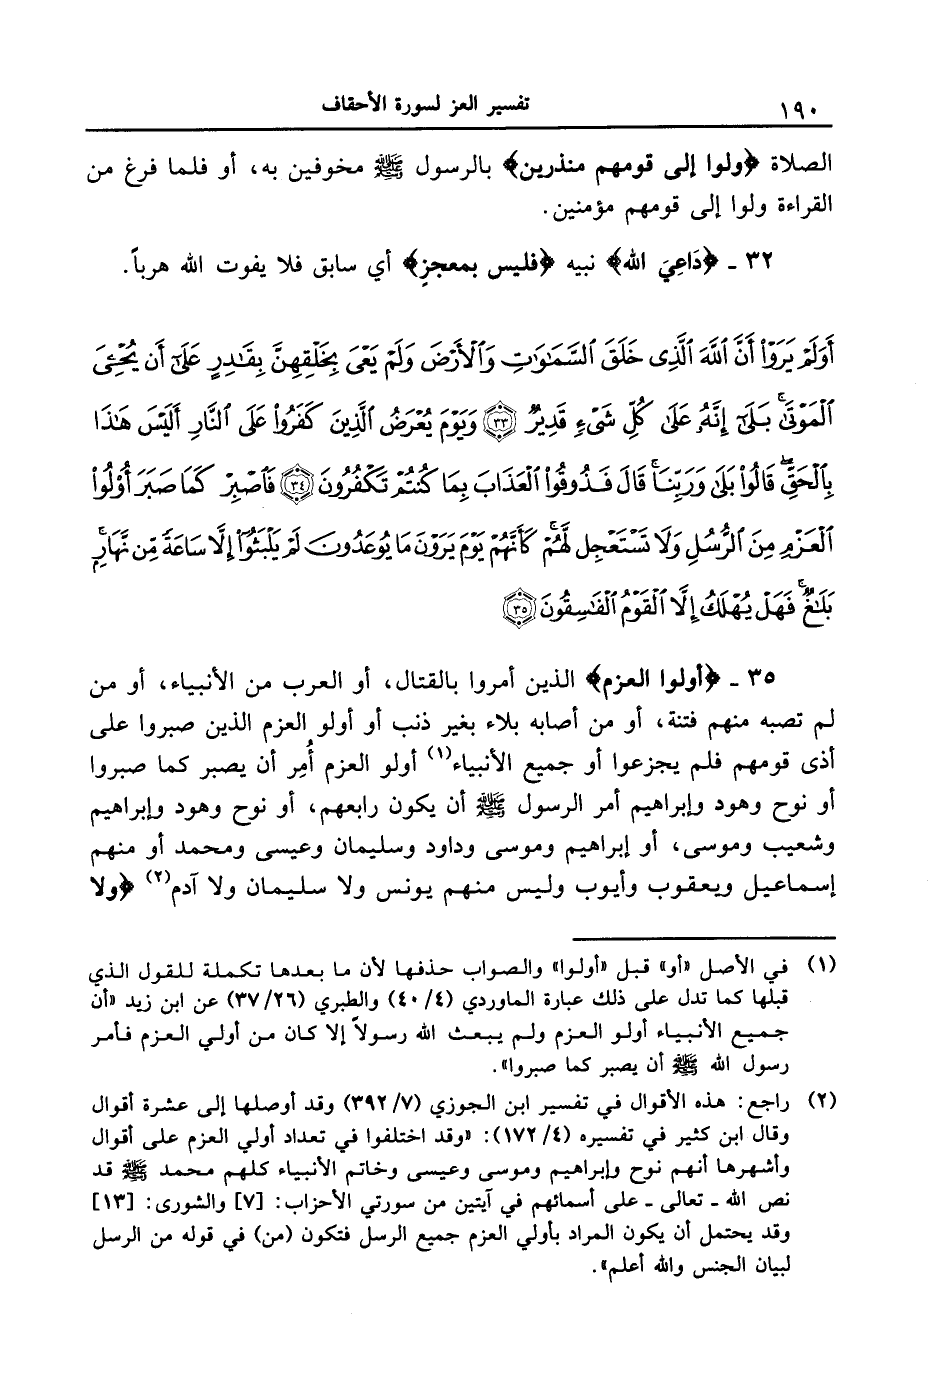 ١٩٠
تفسير العز لسورة الأحقاف
الصلاة ﴿ولوا إلى قومهم منذرين﴾ بالرسول ﷺ مخوفين به، أو فلما فرغ من
القراءة ولوا إلى قومهم مؤمنين.
٣٢ ـ ﴿دَاعِيَ الله﴾ نبيه ﴿فليس بمعجزٍ﴾ أي سابق فلا يفوت الله هرباً.
أَوَلَمْ يَرَوْا۟ أَنَّ ٱللَّهَ ٱلَّذِى خَلَقَ ٱلسَّمَٰوَٰتِ وَٱلْأَرْضَ وَلَمْ يَعْىَ بِخَلْقِهِنَّ بِقَٰدِرٍ عَلَىٰٓ أَن يُحْۦِىَ
ٱلْمَوْتَىٰ ۚ بَلَىٰٓ إِنَّهُۥ عَلَىٰ كُلِّ شَىْءٍ قَدِيرٌ ﴿٣٣﴾ وَيَوْمَ يُعْرَضُ ٱلَّذِينَ كَفَرُوا۟ عَلَى ٱلنَّارِ أَلَيْسَ هَٰذَا
بِٱلْحَقِّ ۖ قَالُوا۟ بَلَىٰ وَرَبِّنَا ۚ قَالَ فَذُوقُوا۟ ٱلْعَذَابَ بِمَا كُنتُمْ تَكْفُرُونَ ﴿٣٤﴾ فَٱصْبِرْ كَمَا صَبَرَ أُو۟لُوا۟
ٱلْعَزْمِ مِنَ ٱلرُّسُلِ وَلَا تَسْتَعْجِل لَّهُمْ ۚ كَأَنَّهُمْ يَوْمَ يَرَوْنَ مَا يُوعَدُونَ لَمْ يَلْبَثُوٓا۟ إِلَّا سَاعَةً مِّن نَّهَارٍۭ ۚ
بَلَٰغٌ ۚ فَهَلْ يُهْلَكُ إِلَّا ٱلْقَوْمُ ٱلْفَٰسِقُونَ ﴿٣٥﴾
٣٥ ـ ﴿أولوا العزم﴾ الذين أمروا بالقتال، أو العرب من الأنبياء، أو من
لم تصبه منهم فتنة، أو من أصابه بلاء بغير ذنب أو أولو العزم الذين صبروا على
أذى قومهم فلم يجزعوا أو جميع الأنبياء(١) أولو العزم أُمِر أن يصبر كما صبروا
أو نوح وهود وإبراهيم أمر الرسول ﷺ أن يكون رابعهم، أو نوح وهود وإبراهيم
وشعيب وموسى، أو إبراهيم وموسى وداود وسليمان وعيسى ومحمد أو منهم
إسماعيل ويعقوب وأيوب وليس منهم يونس ولا سليمان ولا آدم(٢) ﴿ولا
(١) في الأصل «أو» قبل «أولوا» والصواب حذفها لأن ما بعدها تكملة للقول الذي
قبلها كما تدل على ذلك عبارة الماوردي (٤٠/٤) والطبري (٣٧/٢٦) عن ابن زيد «أن
جميع الأنبياء أولو العزم ولم يبعث الله رسولاً إلا كان من أولي العزم فأمر
رسول الله ﷺ أن يصبر كما صبروا».
(٢) راجع: هذه الأقوال في تفسير ابن الجوزي (٣٩٢/٧) وقد أوصلها إلى عشرة أقوال
وقال ابن كثير في تفسيره (١٧٢/٤): «وقد اختلفوا في تعداد أولي العزم على أقوال
وأشهرها أنهم نوح وإبراهيم وموسى وعيسى وخاتم الأنبياء كلهم محمد ﷺ قد
نص الله ـ تعالى ـ على أسمائهم في آيتين من سورتي الأحزاب: [٧] والشورى: [١٣]
وقد يحتمل أن يكون المراد بأولي العزم جميع الرسل فتكون (من) في قوله من الرسل
لبيان الجنس والله أعلم».